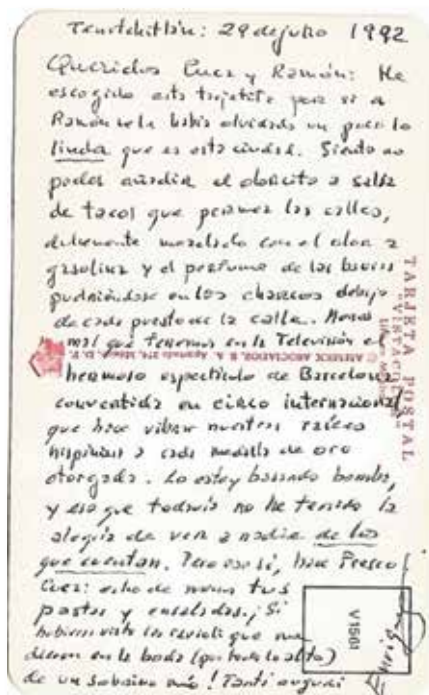 Tenochtitlán: 29 de julio 1992
Queridos Cuca y Ramón: He
escogido esta tarjetita por si a
Ramón se le había olvidado un poco lo
linda que es esta ciudad. Siento no
poder añadir el olorcito a salsa
de tacos que perfuma las calles,
dulcemente mezclado con el olor a
gasolina y el perfume de las
pudriéndose en los charcos debajo
de cada puesto de la calle. Menos
mal que tenemos en la Televisión el
hermoso espectáculo de Barcelona
convertida en circo internacional,
que hace vibrar nuestras raíces
hispánicas a cada medalla de oro
otorgada. Lo estoy pasando bomba,
y eso que todavía no he tenido la
alegría de ver a nadie de los
que cuentan. Pero eso sí, hace fresco
Cuca: echo de menos tus
pastas y ensaladas. ¡Si
hubieras visto los ravioli que me
dieron en la boda (por todo lo alto)
de un sobrino mío! Tanti auguri
TARJETA POSTAL
"VISTACOLOR"
© AMMEX ASOCIADOS, S. A. Apartado
V1561